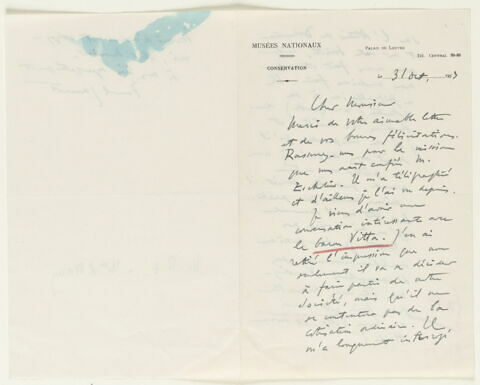 MUSÉES NATIONAUX
PALAIS DU LOUVRE
TÉL. CENTRAL
CONSERVATION
31 Oct,
Cher Monsieur
Merci de votre aimable lettre
et de vos bonnes félicitations.
Rassurez-vous pour la mission
que vous avait confiée M.
Il m'a télégraphié
et d'ailleurs je l'ai vu depuis.
Je viens d'avoir une
conversation intéressante avec
le baron Vitta. J'en ai
retiré l'impression que non
seulement il va se décider
à faire partie de notre
Société, mais qu'il ne
se contentera pas de la
cotisation ordinaire. Il
m'a longuement interrogé